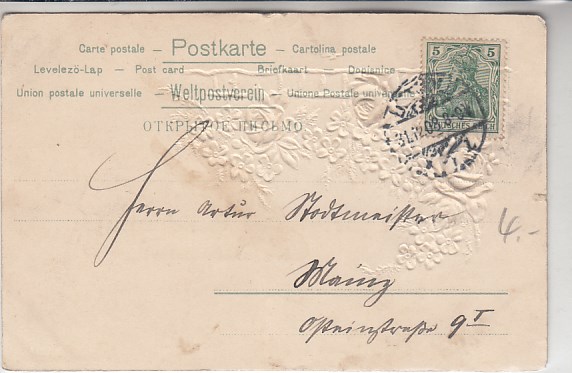 Carte postale – Postkarte – Cartolina postale
Levelező-Lap – Post card Briefkaart – Dopisnice
Union postale universelle – Weltpostverein – Unione Postale univers
ОТКРЫТОЕ ПИСЬМО
5 5
31.12.08.8-9
Herrn Artur Stadtmeister
Mainz
9 I
4.-